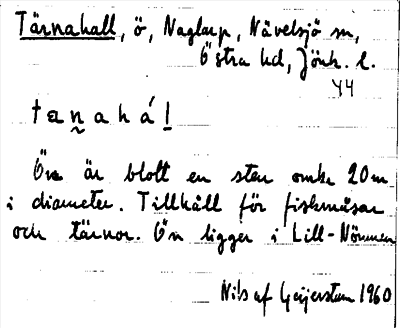 Tärnahall, ö, Naglarp, Nävelsjö sn,
Östra hd, Jönk. l.
44
tæṇahál
Ön är blott en sten omkr 20m
i diameter. Tillhåll för fiskmåsar
och tärnor. Ön ligger i Lill-Nömmen
Nils af Geijerstam 1960